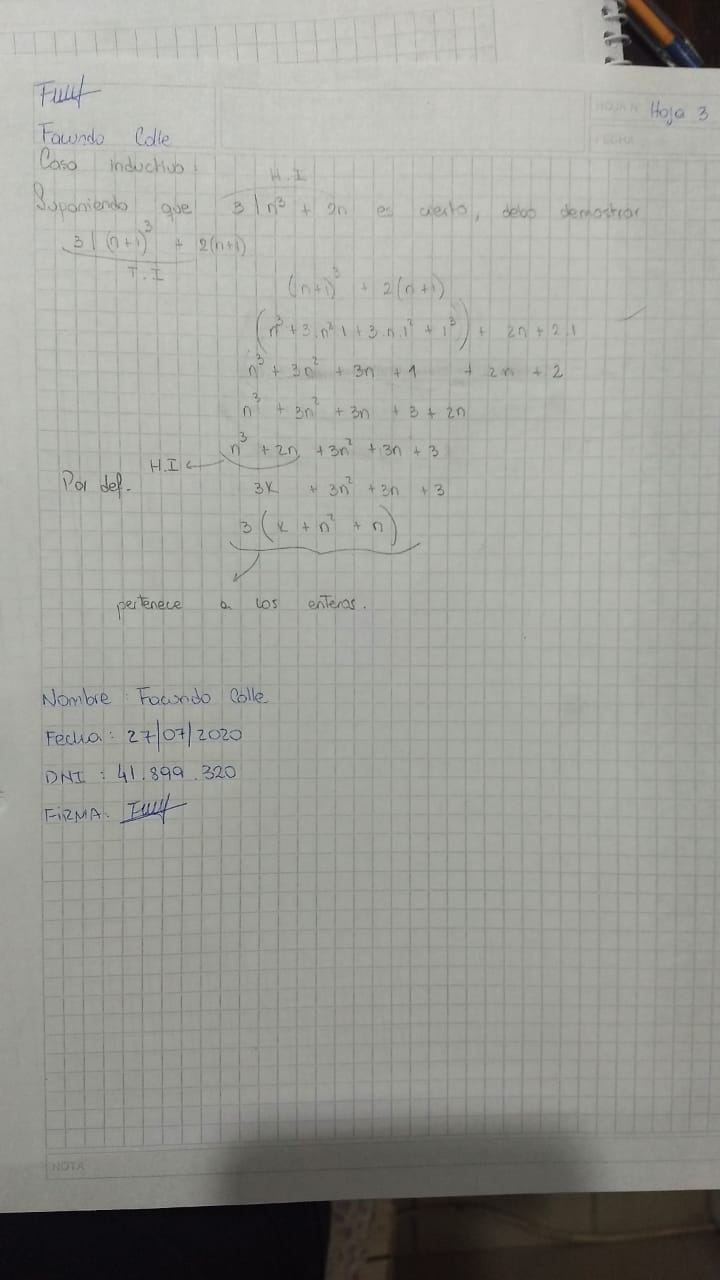 Hoja 3
Facundo Colle
Caso inductivo:
H.I
Suponiendo que 3 | n³ + 2n es cierto, debo demostrar
3 | (n+1)³ + 2(n+1)
T.I
(n+1)³ + 2(n+1)
(n³ + 3.n².1 + 3.n.1² + 1³) + 2n + 2.1
n³ + 3n² + 3n + 1 + 2n + 2
n³ + 3n² + 3n + 3 + 2n
n³ + 2n + 3n² + 3n + 3
H.I ←
Por def. 3k + 3n² + 3n + 3
3(k + n² + n)
pertenece a los enteros.
Nombre: Facundo Colle
Fecha: 27/07/2020
DNI: 41.899.320
FIRMA:
NOTA